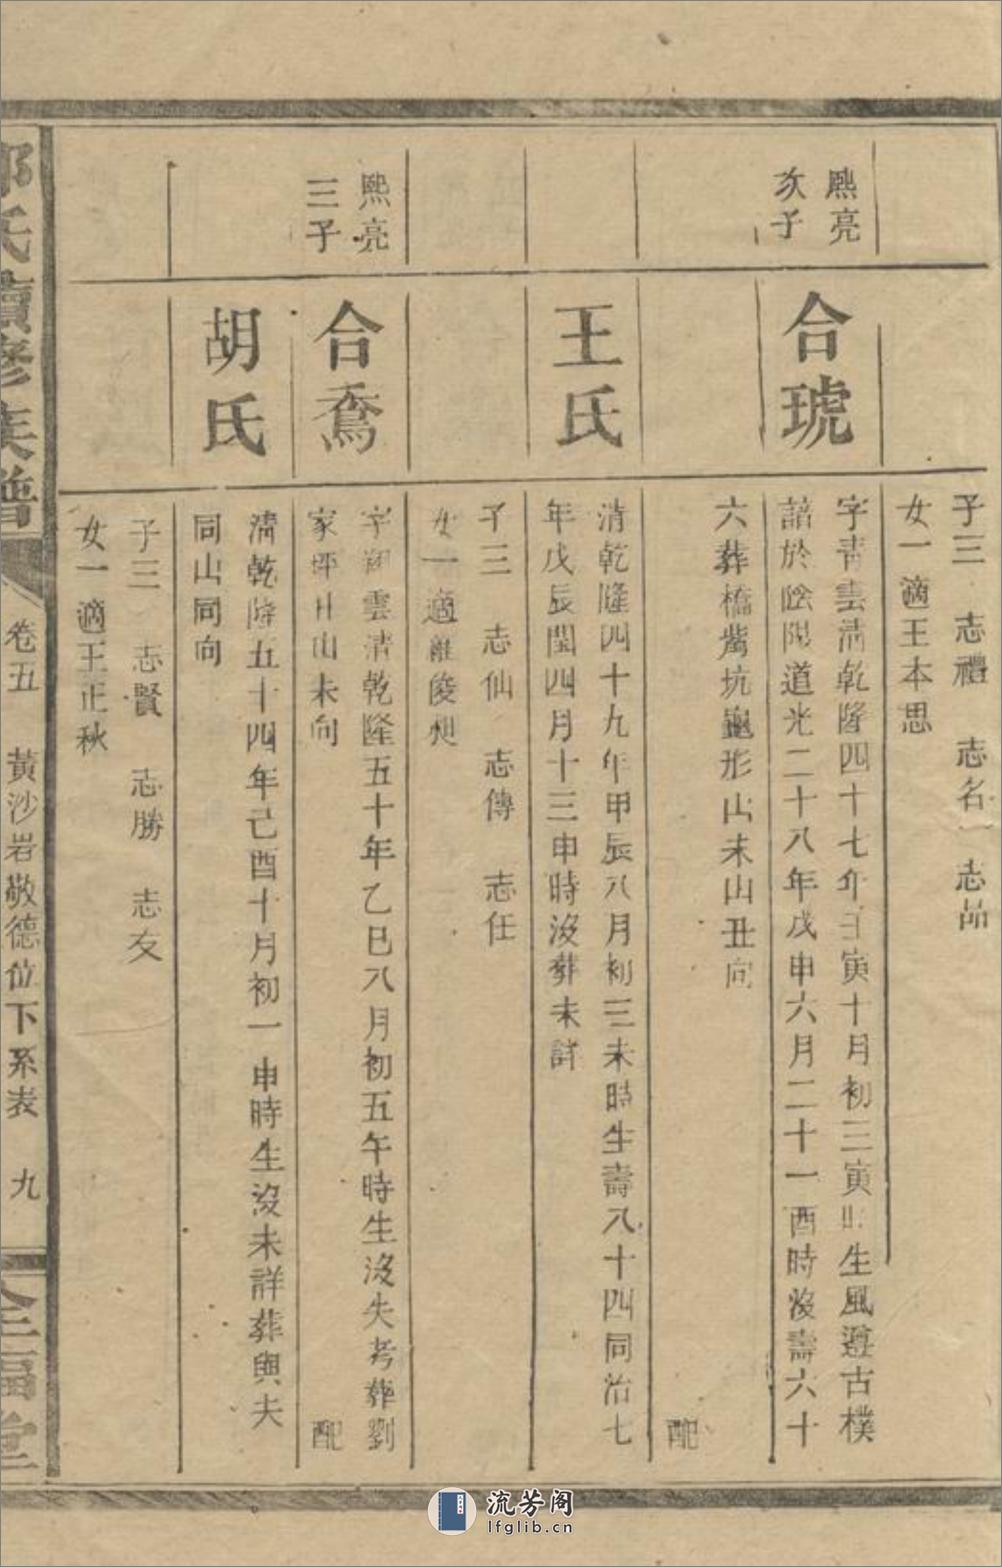 子三 志禮 志名 志品
女一適王本思
熙亮
次子
合琥
字靑雲淸乾隆四十七年壬寅十月初三寅時生風遵古樸
諳於陰陽道光二十八年戊申六月二十一酉時沒壽六十
六葬橋觜坑龜形山未山丑向
配
王氏
淸乾隆四十九年甲辰八月初三未時生壽八十四同治七
年戊辰閏四月十三申時沒葬未詳
子三 志仙 志傳 志任
女一適 俊
熙亮
三子
合鴌
字 雲淸乾隆五十年乙巳八月初五午時生沒失考葬劉
家坪 山未向
配
胡氏
淸乾隆五十四年己酉十月初一申時生沒未詳葬與夫
同山同向
子三 志賢 志勝 志友
女一適王正秋
氏續修族譜
卷五 黃沙岩敬德位下系表 九
堂
流芳阁
lfglib.cn